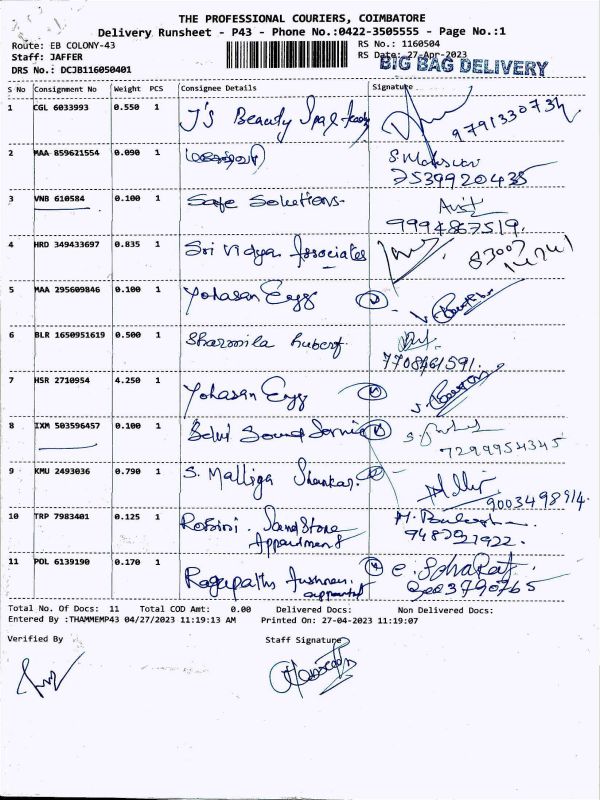 THE PROFESSIONAL COURIERS, COIMBATORE
Delivery Runsheet - P43 - Phone No.:0422-3505555 - Page No.:1
Route: EB COLONY-43 RS No.: 1160504
Staff: JAFFER RS Date: 27-Apr-2023
DRS No.: DCJB116050401 BIG BAG DELIVERY
S No Consignment No Weight PCS Consignee Details Signature
1 CGL 6033993 0.550 1 J's Beauty Spa &
9791330734
2 MAA 859621554 0.090 1
7539920435
3 VNB 610584 0.100 1 Safe Solutions
9994867519.
4 HRD 349433697 0.835 1 Sri Vidya Associates 83007
5 MAA 295609846 0.100 1 Yohasan Engg
6 BLR 1650951619 0.500 1 Sharmila hubert
7708461591.
7 HSR 2710954 4.250 1 Yohasan Engg
8 IXM 503596457 0.100 1 Selvi Sound Service
7299954345
9 KMU 2493036 0.790 1 S. Malliga Shankar.
9003498914.
10 TRP 7983401 0.125 1 Rosini. Sand Stone
Appartment
9487521922.
11 POL 6139190 0.170 1 Ragupathi
Total No. Of Docs: 11 Total COD Amt: 0.00 Delivered Docs: Non Delivered Docs:
Entered By :THAMMEMP43 04/27/2023 11:19:13 AM Printed On: 27-04-2023 11:19:07
Verified By Staff Signature